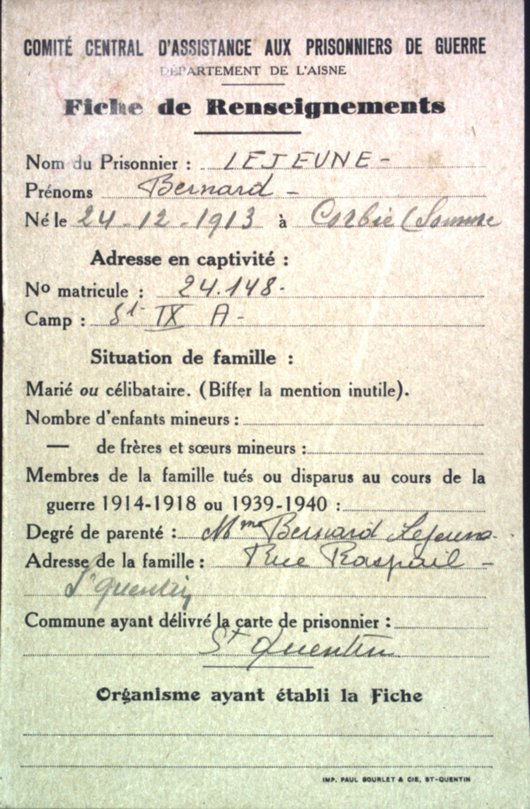 COMITÉ CENTRAL D'ASSISTANCE AUX PRISONNIERS DE GUERRE
DÉPARTEMENT DE L'AISNE
Fiche de Renseignements
Nom du Prisonnier : LEJEUNE -
Prénoms Bernard -
Né le 24-12-1913 à Corbie (Somme
Adresse en captivité :
Nº matricule : 24.148-
Camp : St- IX A -
Situation de famille :
Marié ou célibataire. (Biffer la mention inutile).
Nombre d'enfants mineurs :
— de frères et sœurs mineurs :
Membres de la famille tués ou disparus au cours de la
guerre 1914-1918 ou 1939-1940 :
Degré de parenté : Mme Bernard Lejeune -
Adresse de la famille : Rue Raspail -
St Quentin
Commune ayant délivré la carte de prisonnier :
St Quentin
Organisme ayant établi la Fiche
IMP. PAUL BOURLET & CIE, ST-QUENTIN